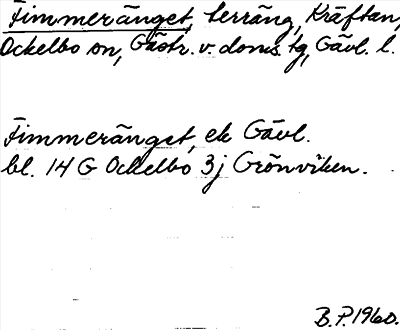 Timmeränget, terräng, Kräftan,
Ockelbo sn, Gästr. v. doms. tg, Gävl. l.
Timmeränget, ek Gävl.
bl. 14 G Ockelbo 3 j Grönviken.
B.P. 1960.